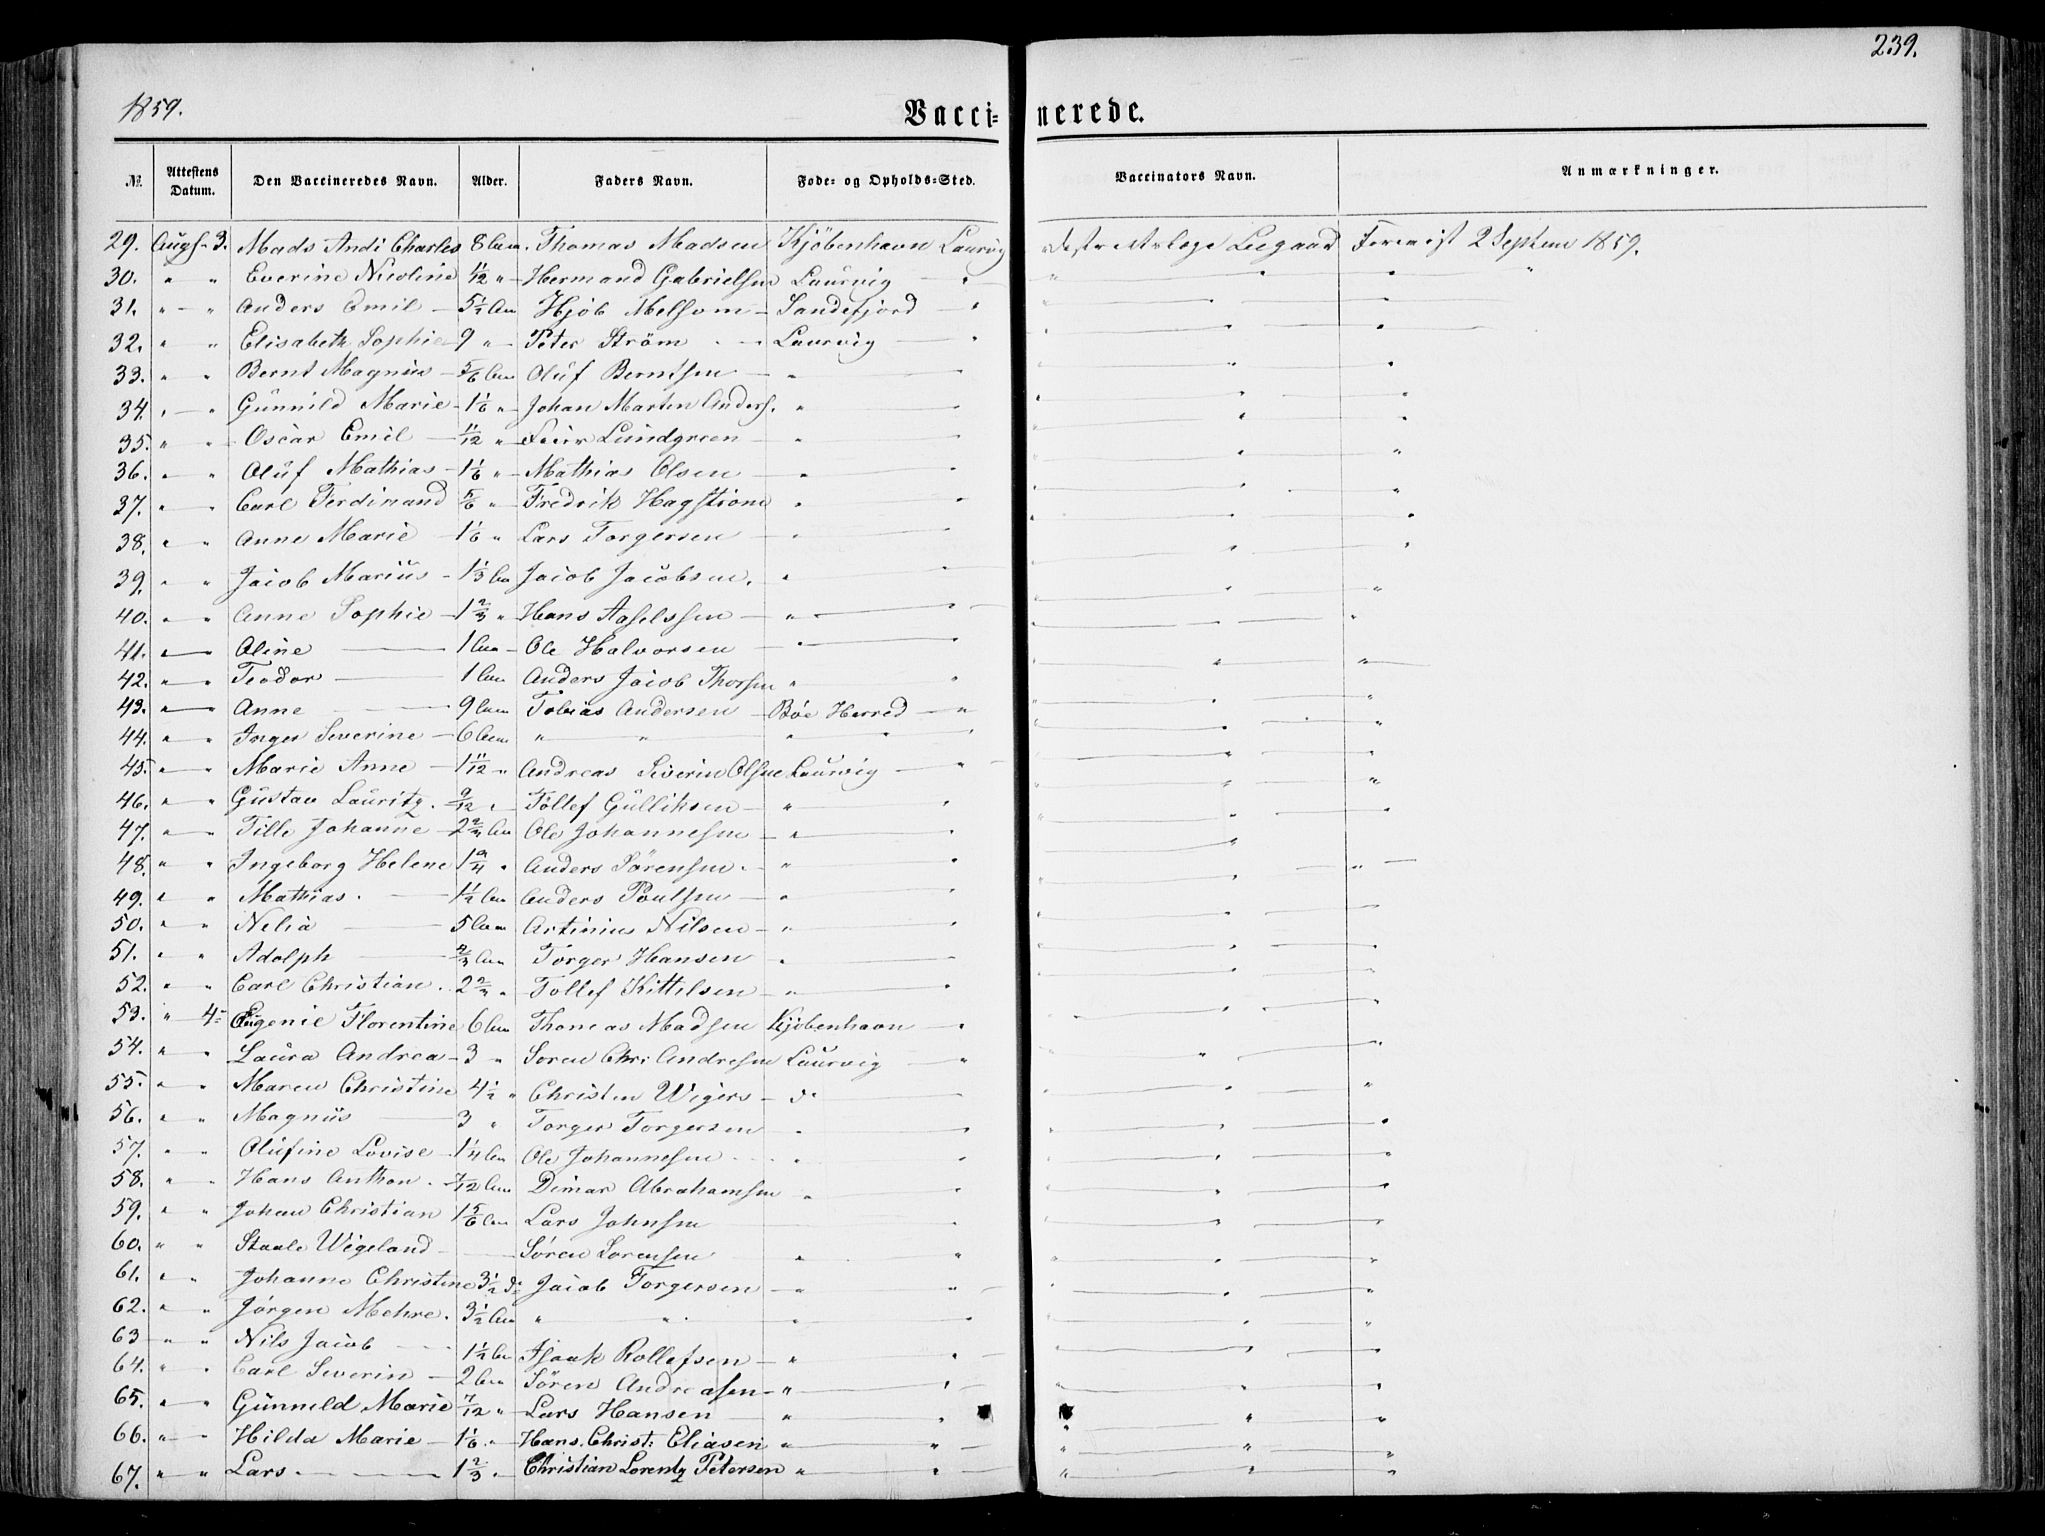 239.
1859.
Vacci= nerede.
№ Attestens Datum. Den Vaccineredes Navn. Alder. Faders Navn. Føde- og Opholds-Sted. Vaccinators Navn. Anmærkninger.
29. Augs. 3. Mads Andr Charles 8 Aar. Thomas Madsen Kjöbenhavn Laurvig Lægaard Forevist 2 Septem 1859.
30. " " Everine Nicoline 1/12 " Hermand Gabrielsen Laurvig " " " "
31. " " Anders Emil 5 1/2 Aar Hjob Melsom Sandefjord " " " "
32. " " Elisabeth Sophie 9 " Peter Ström Laurvig " " " "
33. " " Bernt Magnus 5/6 Aar Oluf Berntsen " " " " "
34. " " Gunnild Marie 1 1/6 " Johan Marten Anders. " " " " "
35. " " Oscar Emil 11/12 " Lundgreen " " " " "
36. " " Oluf Mathias 1 1/6 " Mathias Olsen " " " " "
37. " " Carl Ferdinand 5/6 " Fredrik Hagstrom " " " " "
38. " " Anne Marie 1 1/6 " Lars Torgersen " " " " "
39. " " Jacob Marius 1 1/3 Aar Jacob Jacobsen. " " " " "
40. " " Anne Sophie 1 2/3 " Hans " " " " "
41. " " Oline 1 Aar Ole Halvorsen " " " " "
42. " " Teodor 1 Aar Anders Jacob Thorsen " " " " "
43. " " Anne 9 Aar Tobias Andersen Böe Herred " " " "
44. " " Inger Severine 6 Aar " " " " " " "
45. " " Marie Anne 1 11/12 " Andreas Siverin Olsen Laurvig " " " "
46. " " Gustav Lauritz. 9/12 " Tollef Gulliksen " " " " "
47. " " Tille Johanne 2 Aar Ole Johannesen " " " " "
48. " " Ingeborg Helene 1 " Anders Sörensen. " " " " "
49. " " Mathias. 1 1/2 Aar Anders Poulsen " " " " "
50. " " Nelia 5 Aar Artinius Nilsen " " " " "
51. " " Adolph Aar Torger Hansen " " " " "
52. " " Carl Christian. 2 " Tollef Kittelsen " " " " "
53. " 4 Eugenie Florentine 6 Aar Thomas Madsen Kjöbenhavn " " " "
54. " " Laura Andrea 3 " Soren Chr: Andresen Laurvig " " " "
55. " " Maren Christine 4 1/2 " Christen Wigers do " " " "
56. " " Magnus 3 " Torger Torgersen " " " " "
57. " " Olufine Lovise 1 1/4 Aar Ole Johannesen " " " " "
58. " " Hans Anthon. 7/12 Aar Dimar Abrahamsen " " " " "
59. " " Johan Christian 1 5/6 Aar Lars Johnsen " " " "
60. " " Staale Wigeland Sören Sorensen " " " " "
61. " " Johanne Christine 3 1/2 do Jacob Torgersen " " " " "
62. " " Jörgen Mehre. 3 1/2 Aar " " " " " " "
63 " " Nils Jacob 1 1/2 Aar Isaak Rollefsen " " " " "
64. " " Carl Severin 2 Aar Sören Andreasen " " " " "
65. " " Gunneld Marie 7/12 " Lars Hansen " " " " "
66. " " Hilda Marie 1 1/6 " Hans Christ: Eliasen " " " " "
67. " " Lars. 1 2/3 " Christian Lorentz Petersen " " " " "